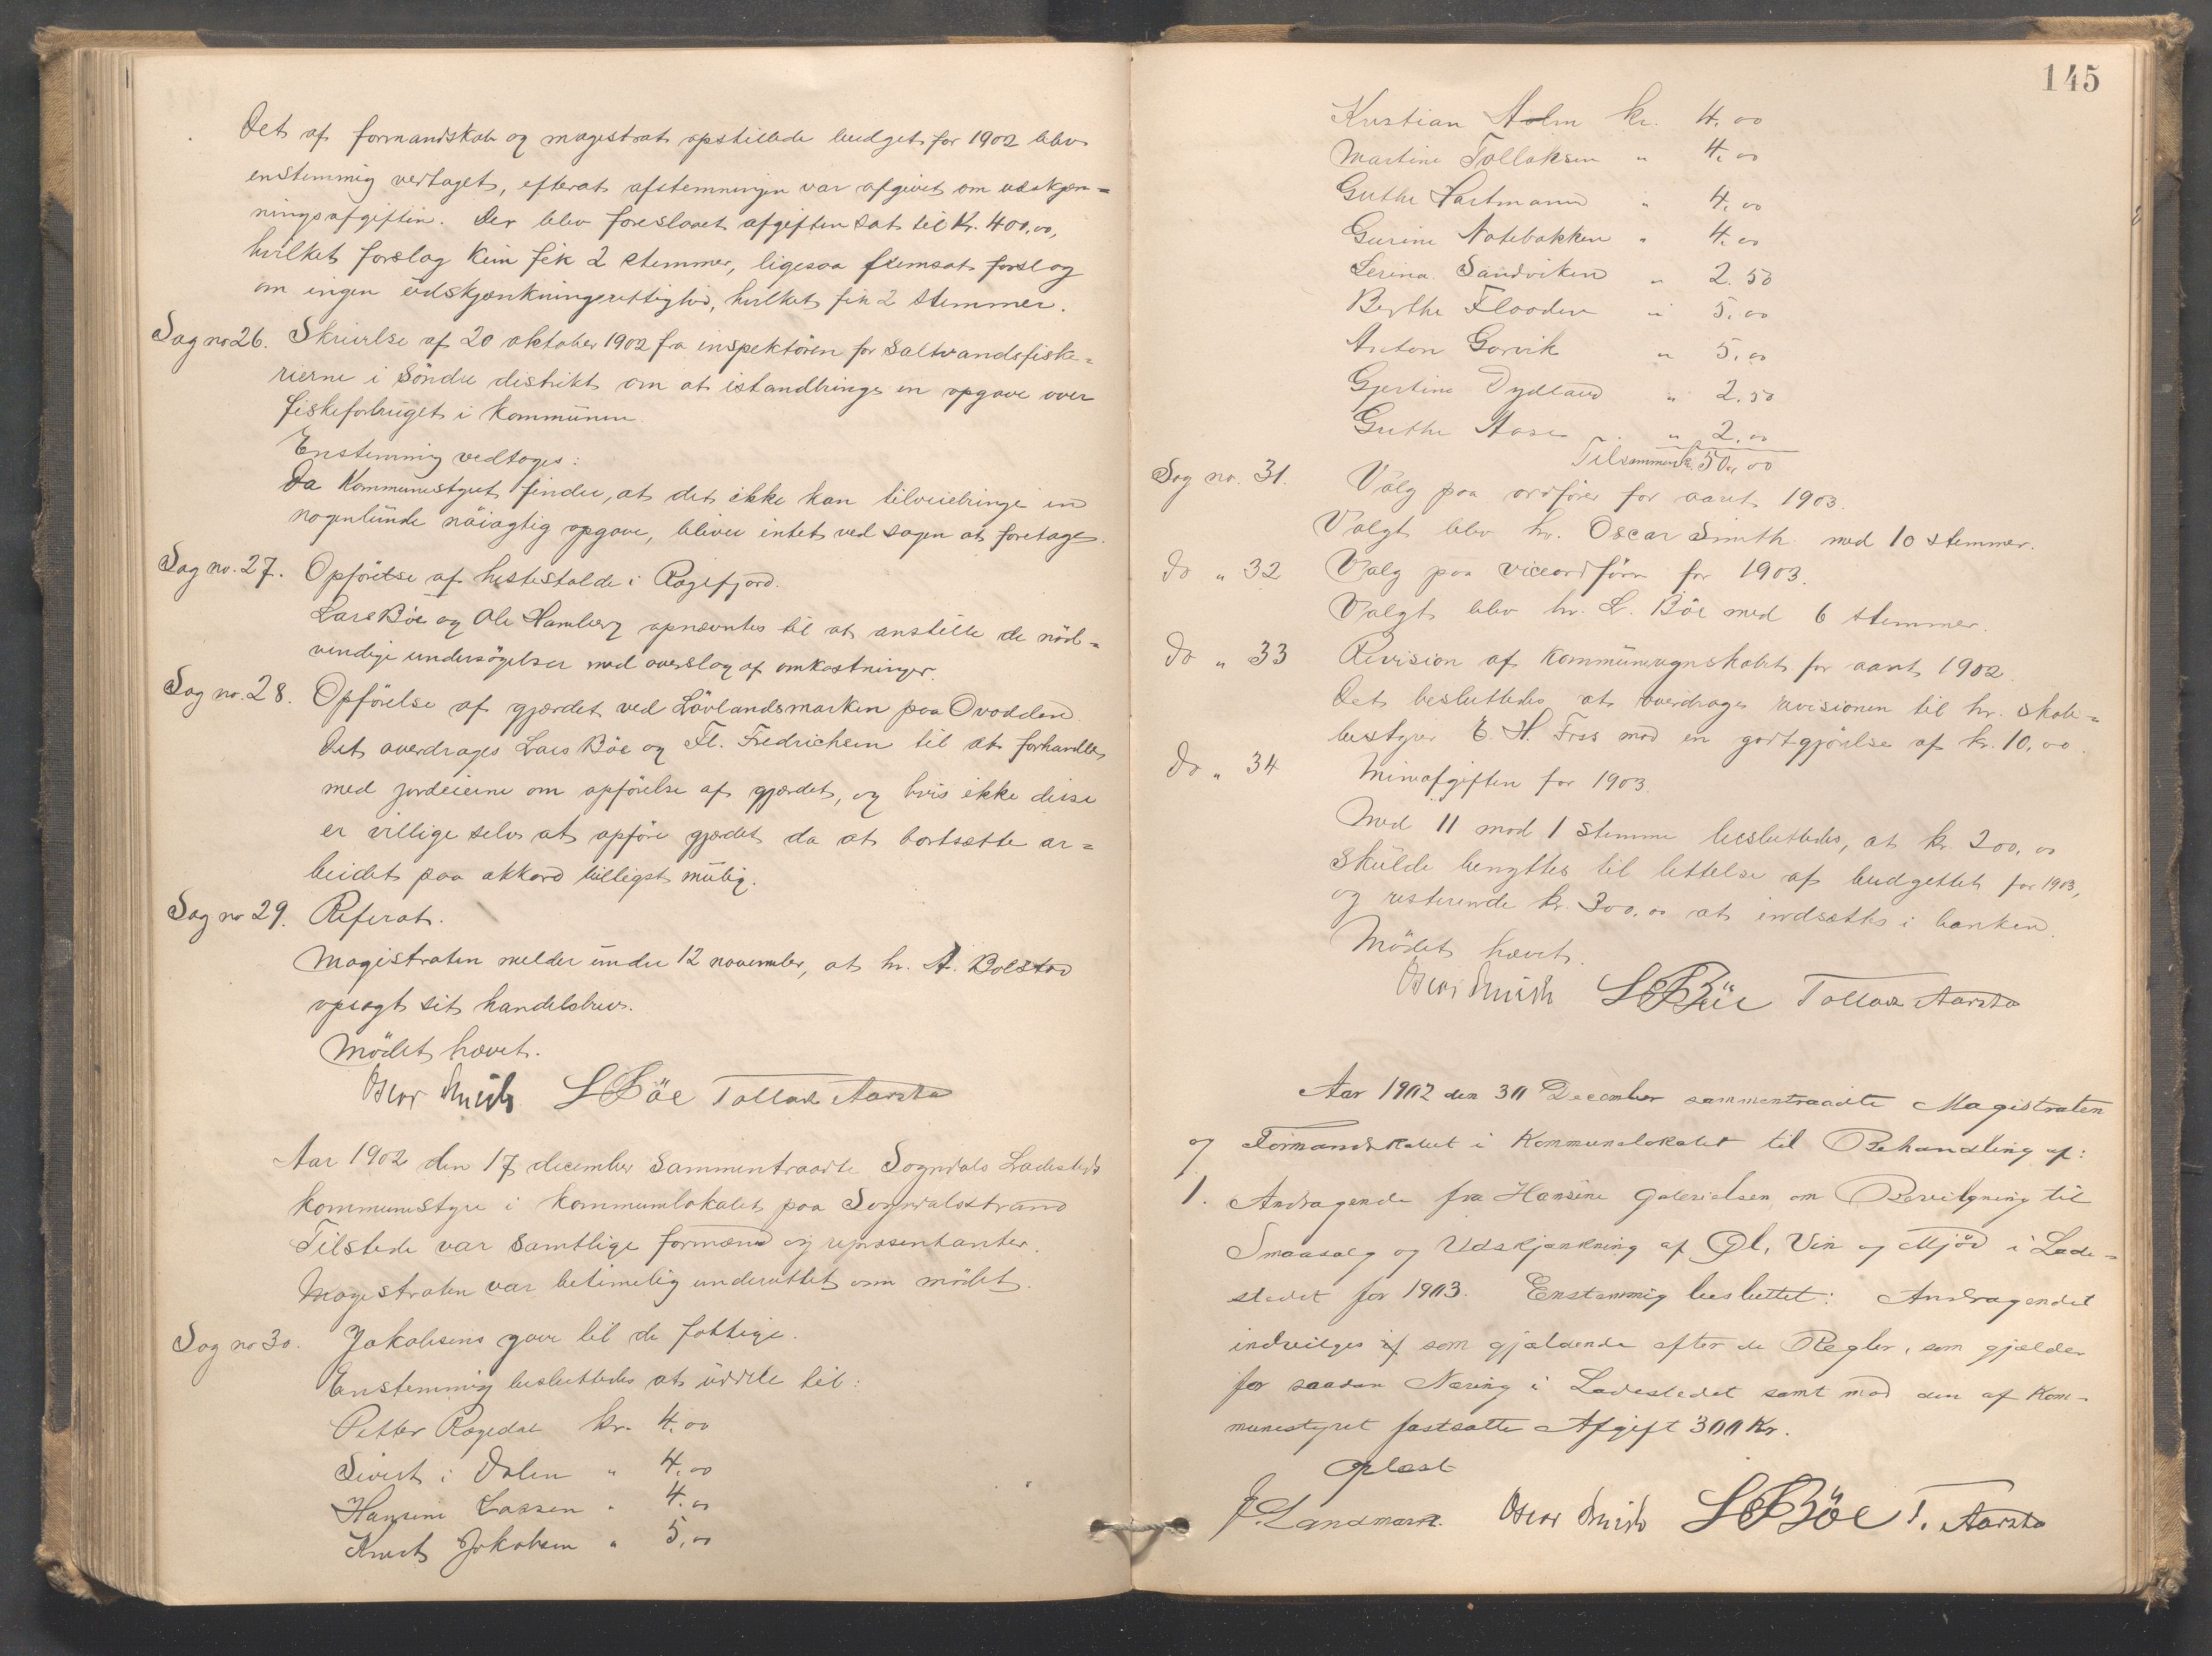 Det af formandskab og magistrat opstillede budget for 1902 blev
enstemmig vertaget, efterat afstemningen var afgivet om udskjæn=
ningsafgiften. Der blev foreslaaet afgiften sat til Kr. 400,00,
hvilket forslag kun fik 2 stemmer, ligesaa fremsat forslag
om ingen udskjænkningsrettighed, hvilket fik 2 stemmer.
Sag no 26. Skrivelse af 20 oktober 1902 fra inspektören for saltvandsfiske=
rierne i Söndre distrikt om at istandbringe en opgave over
fiskeforbruget i kommunen
Enstemmig vedtoges:
Da Kommunestyret finder, at det ikke kan tilveiebringe en
nogenlunde nöiagtig opgave, bliver intet ved sagen at foretage.
Sag no. 27. Opförelse af hestestalde i Rægefjord.
Lars Böe og Ole Hamberg opnævntes til at anstille de nöd=
vendige undersögelser med overslag af omkostninger.
Sag no. 28. Opförelse af gjærdet ved Lövlandsmarken paa Ovodden.
Det overdrages Lars Böe og Fl. Fredrichsen til at forhandle
med jordeierne om opförelse af gjærdet, og hvis ikke disse
er villige selv at opföre gjærdet da at bortsætte ar=
beidet paa akkord billigst mulig.
Sag no 29. Referat.
Magistraten melder under 12 november, at hr. A. Bolstad
opsagt sit handelsbrev.
Mödet hævet.
Oscar Smith LBöe Tollak Aarstad
Aar 1902 den 17 december sammentraadte Sogndals Ladesteds
kommunestyre i kommunlokalet paa Sogndalsstrand
Tilstede var samtlige formænd og repræsentanter.
Magistraten var betimelig underrettet om mödet.
Sag no 30. Jakobsens gave til de fattige.
Enstemmig besluttedes at uddele til:
Petter Rægedal kr. 4,00
Sivert i Dalen " 4,00
Hansine Lassen " 4,00
Knut Jakobsen " 5,00
145
Kristian Holm kr. 4,00
Martine Tollaksen " 4,00
Guthe Hartmann " 4,00
Gurine Natebakken " 4,00
Serina Sandviken " 2.50
Berthe Flooden " 5,00
Anton Gorvik " 5,00
Gjertine Dydland " 2.50
Guthe Aase " 2,00
Tilsammen k. 50,00
Sag no. 31. Valg paa ordförer for aaret 1903.
Valgt blev hr. Oscar Smith med 10 stemmer.
do " 32 Valg paa viceordförer for 1903.
Valgt blev hr. L. Böe med 6 stemmer.
do " 33 Revision af kommuneregnskabet for aaret 1902
Det besluttedes at overdrage revisionen til hr. skole=
bestyrer E. H. Foss mod en godtgjörelse af kr. 10,00.
do " 34 Mineafgiften for 1903.
Med 11 mod 1 stemme besluttedes, at kr. 200,00
skulde benyttes til lettelse af budgettet for 1903,
og resterende kr. 300,00 at indsættes i banken.
Mödet hævet.
Oscar Smith LBöe Tollak Aarstad
Aar 1902 den 30 December sammentraadte Magistraten
og Formandskabet i Kommunelokalet til Behandling af:
1. Andragende fra Hansine Gabrielsen om Bevilgning til
Smaasalg og Udskjænkning af Öl, Vin og Mjöd i Lade=
stedet for 1903. Enstemmig besluttet: Andragendet
indvilges som gjældende efter de Regler, som gjælder
for saadan Næring i Ladestedet samt mod den af Kom-
munestyret fastsatte Afgift 300 Kr.
Oplæst
J. Landmark. Oscar Smith LBöe T. Aarstad